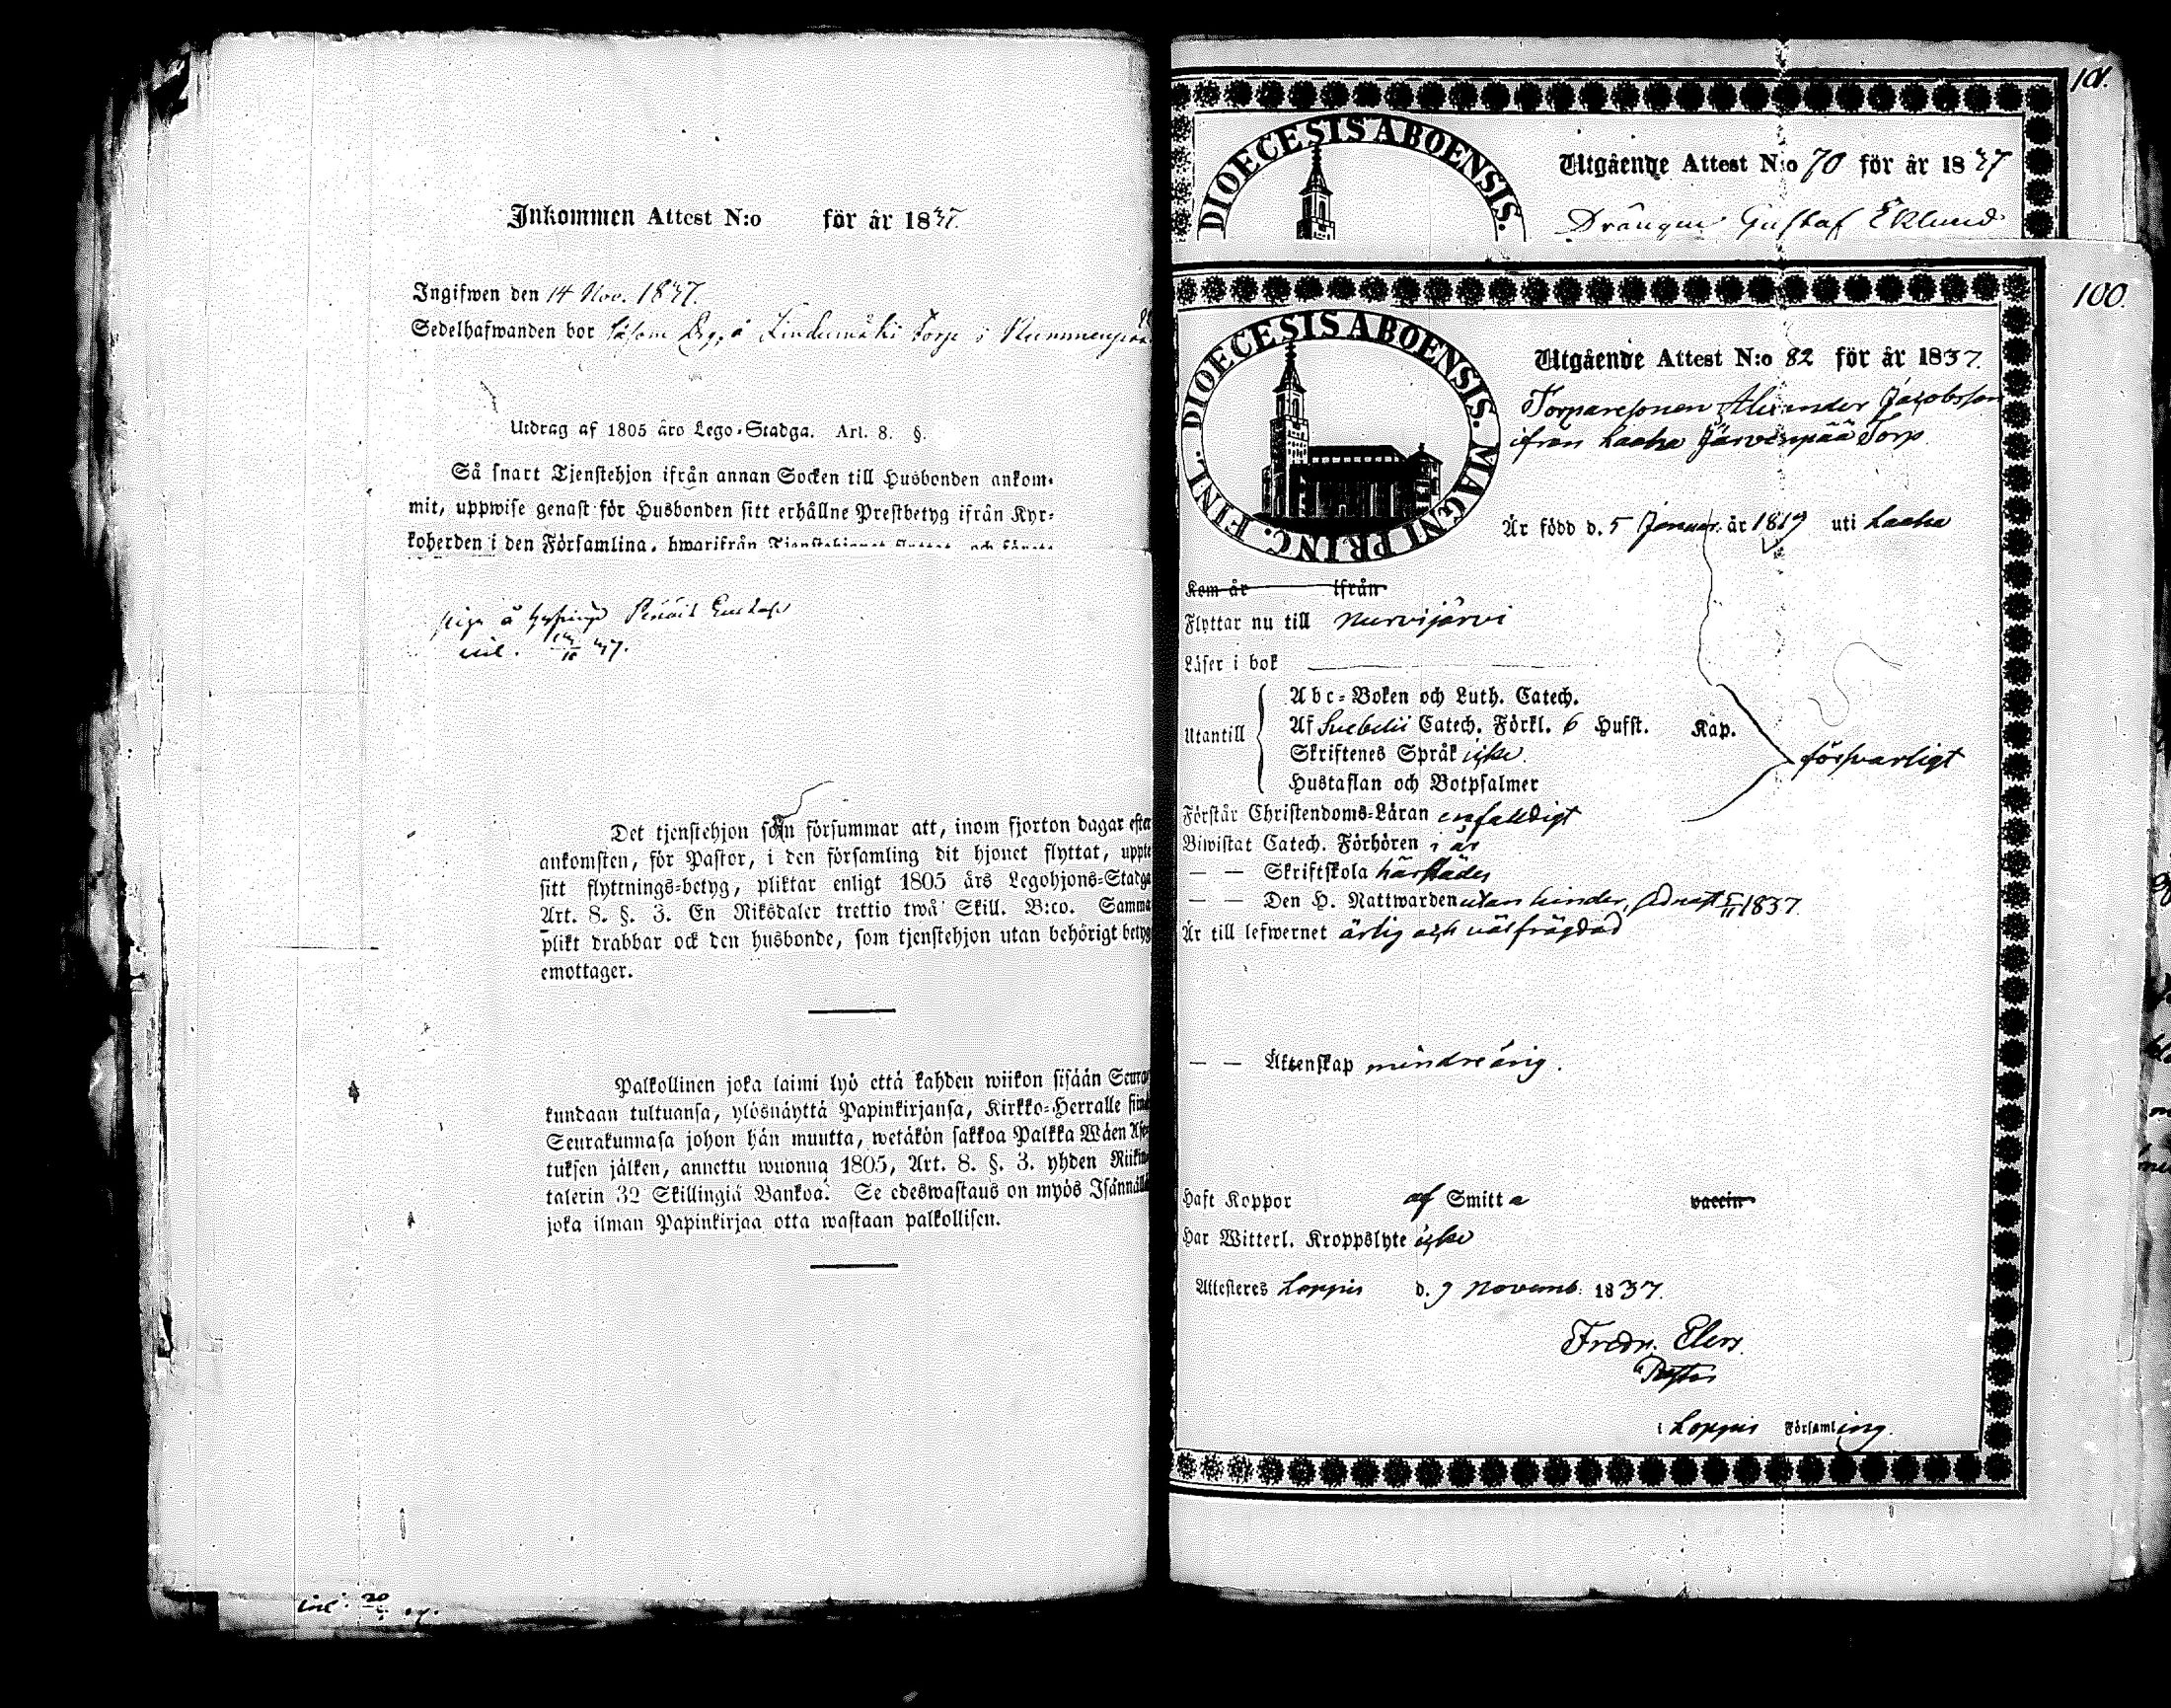 Inkommen Attest N:o för år 1837.
Ingifwen den 14 Nov. 1837.
Sedelhafwanden bor såsom Drg. å Torp i
Utdrag af 1805 års Lego-Stadga. Art. 8. §.
Så snart Tjenstehjon ifrån annan Socken till Husbonden ankom-
mit, uppwise genast för Husbonden sitt erhållne Prestbetyg ifrån Kyr-
koherden i den Församling, hwarifrån Tjenstehjonet
piga å
inl. 37.
Det tjenstehjon som försummar att, inom fjorton dagar efter
ankomsten, för Pastor, i den församling dit hjonet flyttat, uppte
sitt flyttnings-betyg, pliktar enligt 1805 års Legohjons-Stadga
Art. 8. §. 3. En Riksdaler trettio twå Skill. B:co. Samma
plikt drabbar ock den husbonde, som tjenstehjon utan behörigt betyg
emottager.
Palkollinen joka laimi lyö että kahden wiikon sisään Seura-
kundaan tultuansa, ylösnäyttä Papinkirjansa, Kirkko-Herralle siinä
Seurakunnasa johon hän muutta, wetäkön sakkoa Palkka Wäen Ase-
tuksen jälken, annettu wuonna 1805, Art. 8. §. 3. yhden Riikin-
talerin 32 Skillingiä Bankoa. Se edeswastaus on myös Isännällä
joka ilman Papinkirjaa otta wastaan palkollisen.
inl.
101.
DIOECESIS ABOENSIS.
Utgående Attest N:o 70 för år 1837
Drängen Gustaf Eklund
100.
DIOECESIS ABOENSIS. MAGNI PRINC. FINL.
Utgående Attest N:o 82 för år 1837.
Torparesonen Alexander Jacobsson
ifrån Laaha Järvenpää Torp
Är född d. 5 Januar. år 1819 uti Laaha
Kom år ifrån
Flyttar nu till Nurmijärvi
Läser i bok
Utantill
Abc-Boken och Luth. Catech.
Af Svebelii Catech. Förkl. 6 Hufst. Kap.
Skriftenes Språk icke
Hustaflan och Botpsalmer
försvarligt
Förstår Christendoms-Läran enfalldigt
Biwistat Catech. Förhören i år
— — Skriftskola härstädes
— — Den H. Nattwarden utan hinder, sednast 1837.
Är till lefwernet ärlig och välfrägdad
— — Äktenskap mindreårig.
Haft Koppor af Smitta vaccin
Har Witterl. Kroppslyte icke
Attesteres Loppis d. 9 Novemb. 1837.
Fredr. Elers.
Pastor
i Loppis Församling.